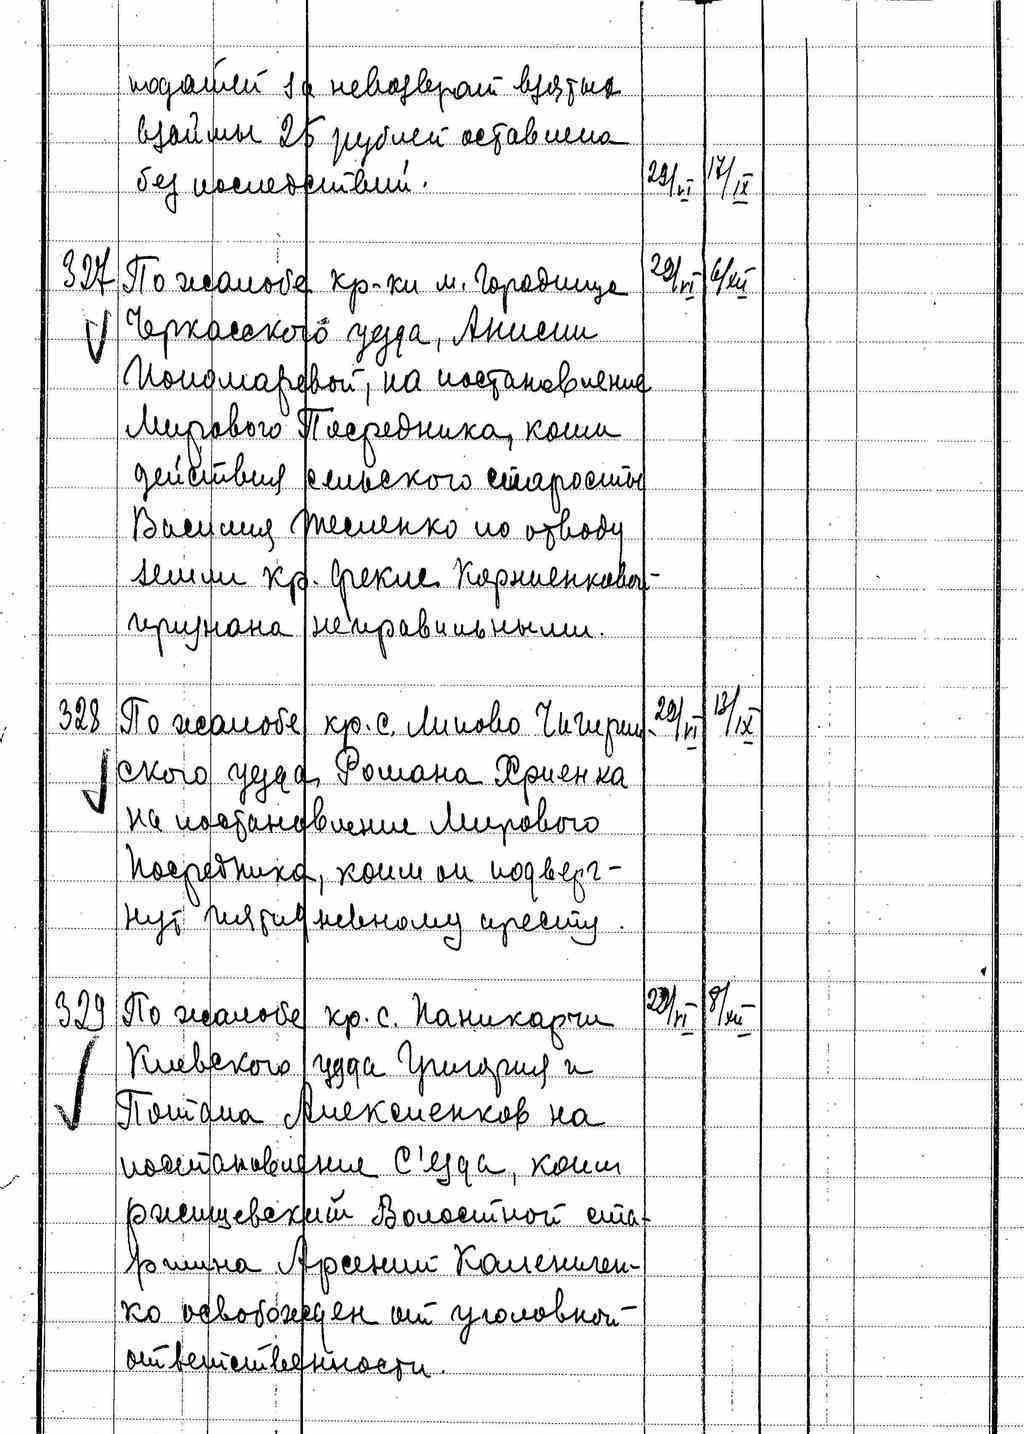 податей за невозврат взятых
взаймы 25 рублей оставлена
без последствий. 29/VI 17/IX
327 По жалобе кр-ки м. Городища 29/VI 6/XII
Черкасского уезда, Анисии
Пономаревой, на постановление
Мирового Посредника, коим
действия сельского старосты
Василия Тесленко по отводу
земли кр. Фекле Корниенковой
признана неправильными.
328 По жалобе кр. с. Липово Чигирин- 29/VI 13/IX
ского уезда, Романа Хриенка
на постановление Мирового
Посредника, коим он подверг-
нут пятидневному аресту.
329 По жалобе кр. с. Паникарчи 29/VI 8/XII
Киевского уезда Григория и
Потапа Алексиенков на
постановление С'езда, коим
ржищевский Волостной ста-
ршина Арсений
ко освобожден от уголовной
ответственности.